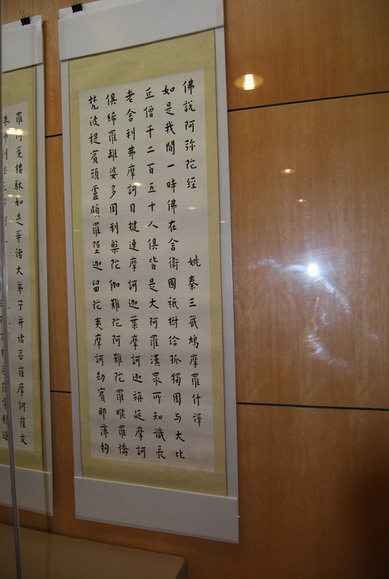 佛說阿弥陀經 姚秦三藏鳩摩羅什譯
如是我聞一時佛在舍衛國祇樹給孤獨園与大比
丘僧千二百五十人俱皆是大阿羅漢眾所知識長
老舍利弗摩訶目揵連摩訶迦葉摩訶迦旃延摩訶
俱絺羅離婆多周利槃陀伽難陀阿難陀羅睺羅憍
梵波提賓頭盧頗羅墮迦留陀夷摩訶劫賓那薄拘
羅阿㝹樓馱如是等諸大弟子并諸菩薩摩訶薩文